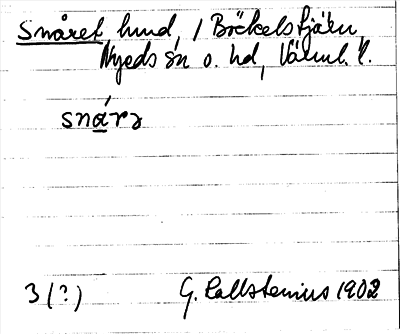 Snåret hund, / Bäckelstjärn,
Nyeds sn o. hd, Värml. l.
snárə
3 (?) G. Kallstenius 1902